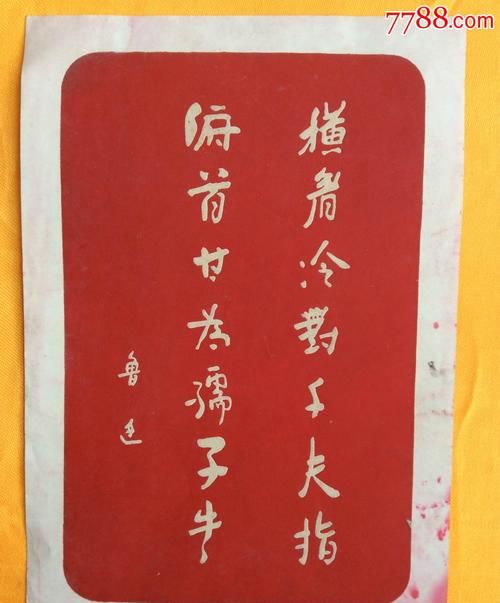 7788.com
橫眉冷對千夫指
俯首甘為孺子牛
魯迅